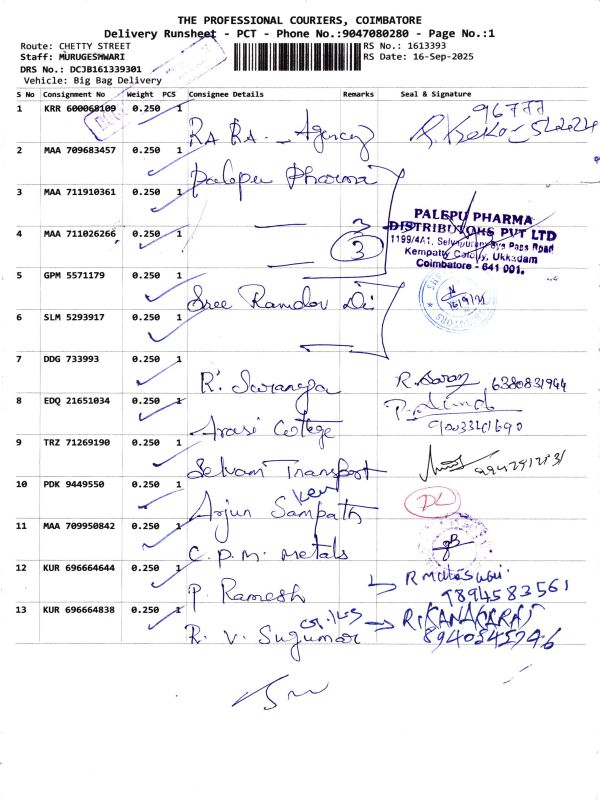 THE PROFESSIONAL COURIERS, COIMBATORE
Delivery Runsheet - PCT - Phone No.:9047080280 - Page No.:1
Route: CHETTY STREET
RS No.: 1613393
Staff: MURUGESHWARI
RS Date: 16-Sep-2025
DRS No.: DCJB161339301
Vehicle: Big Bag Delivery
S No Consignment No Weight PCS Consignee Details Remarks Seal & Signature
1 KRR 600068109 0.250 1 Ra Ra. Agency
2 MAA 709683457 0.250 1 Palepu Pharma
3 MAA 711910361 0.250 1
4 MAA 711026266 0.250 1 3
PALEPU PHARMA
DISTRIBUTORS PVT LTD
1199/4A1, Selvapuram Bye Pass Road
Kempatty Colony, Ukkadam
Coimbatore - 641 001.
5 GPM 5571179 0.250 1 Sree Ramdov
6 SLM 5293917 0.250 1
7 DDG 733993 0.250 1 R. Saranya 6380831944
8 EDQ 21651034 0.250 1 Arasi College
9 TRZ 71269190 0.250 1 Selvam Transport
10 PDK 9449550 0.250 1 Arjun Sampath
11 MAA 709950842 0.250 1 C.P.M. Metals
12 KUR 696664644 0.250 1 P. Ramesh 9894583561
13 KUR 696664838 0.250 1 R. V. Sugumar R.KANAGARAJ